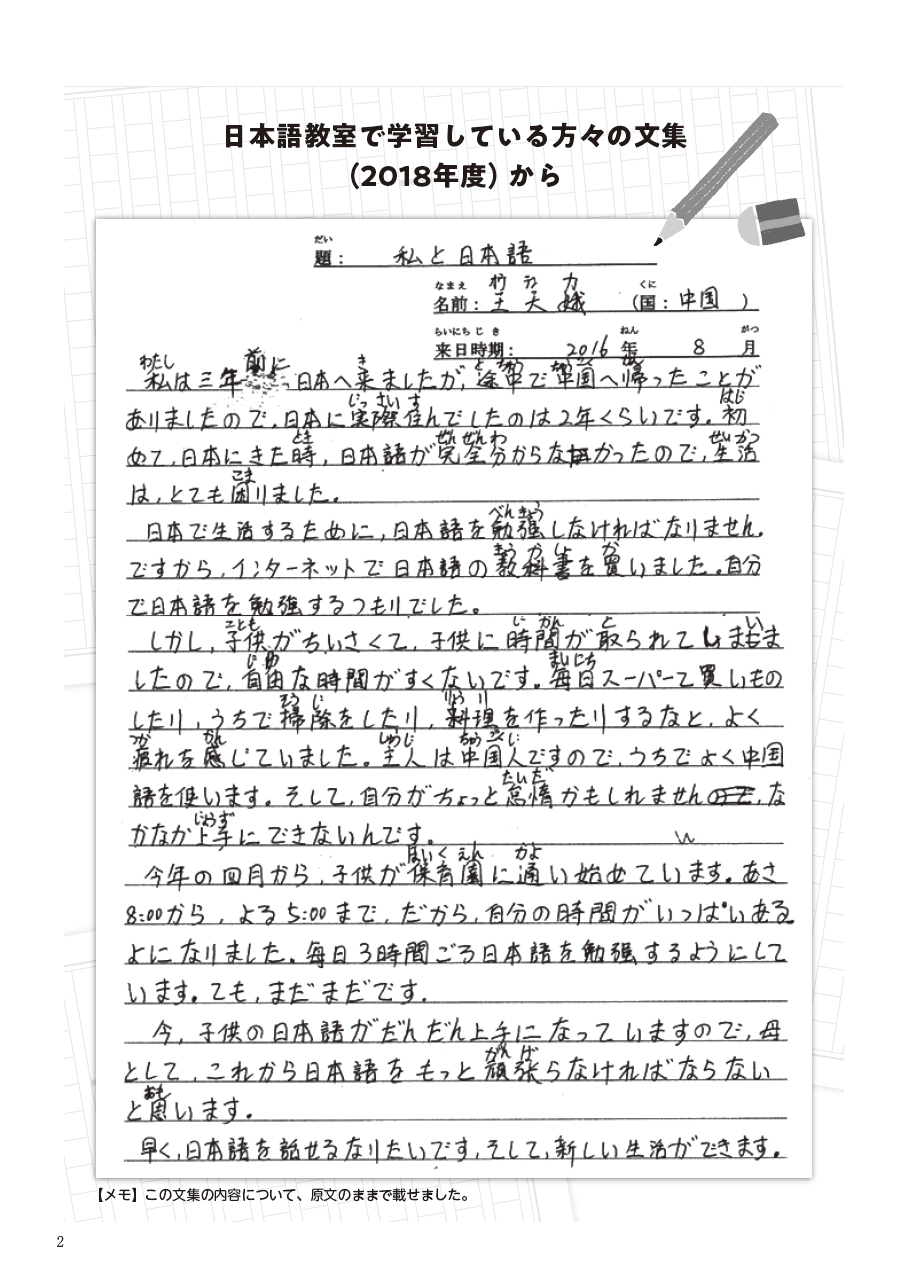 日本語教室で学習している方々の文集
（2018年度）から
だい
題： 私と日本語
オウ テン カ
なまえ くに
名前：王天娥 （国：中国 ）
らいにちじき ねん がつ
来日時期： 2016 年 8 月
わたし き とちゅう ちゅうごく かえ
私は三年前に日本へ来ましたが，途中で中国へ帰ったことが
じっさいす はじ
ありましたので，日本に実際住んでしたのは2年くらいです。初
とき ぜんぜんわ せいかつ
めて，日本にきた時，日本語が完全分からなかったので，生活
こま
は，とても困りました。
べんきょう
日本で生活するために，日本語を勉強しなければなりません。
きょうかしょ か
ですから，インターネットで日本語の教科書を買いました。自分
で日本語を勉強するつもりでした。
こども じかん と い
しかし，子供がちいさくて，子供に時間が取られてしまま
じゆ まいにち
したので，自由な時間がすくないです。毎日スーパーで買いもの
そうじ りょうり
したり，うちで掃除をしたり，料理を作ったりするなと，よく
つか かん しゅじ ちゅうごくじ
疲れを感じていました。主人は中国人ですので，うちでよく中国
たいだ
語を使います。そして，自分がちょっと怠惰かもしれません，な
じょうず
かなか上手にできないんです。
ほいくえん かよ
今年の四月から，子供が保育園に通い始めています。あさ
8:00から，よる5:00まで，だから，自分の時間がいっぱいある
よになりました。毎日3時間ごろ日本語を勉強するようにして
います。ても，まだまだです。
今，子供の日本語がだんだん上手になっていますので，母
がんば
として，これから日本語をもっと頑張らなければならない
おも
と思います。
早く，日本語を話せるなりたいです，そして，新しい生活ができます。
【メモ】この文集の内容について、原文のままで載せました。
2